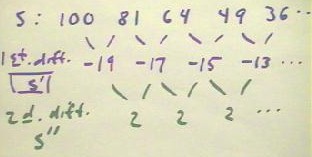 S: 100 81 64 49 36 ...
1st. diff. -19 -17 -15 -13 ...
S'
2d. diff. 2 2 2 ...
S"